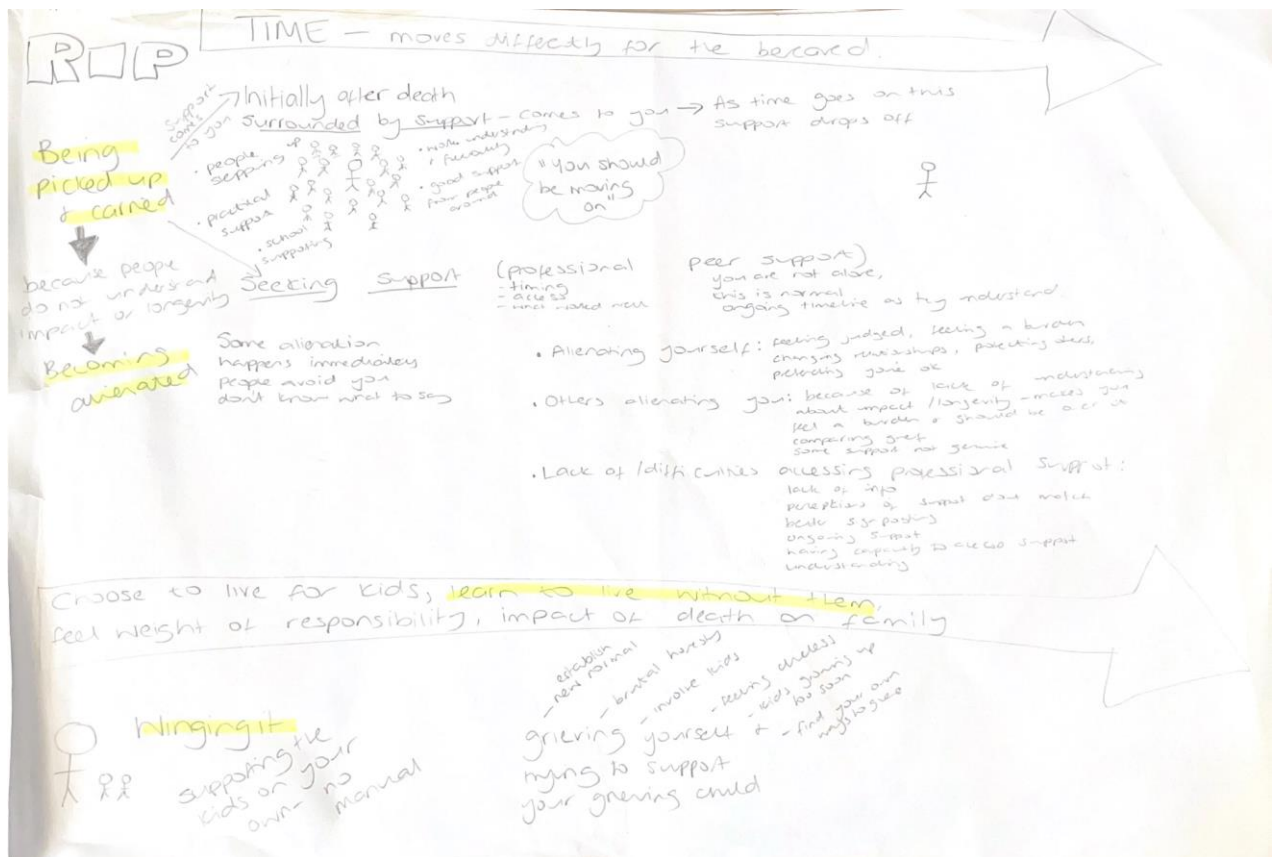 RIP
TIME – moves differently for the bereaved.
Support comes to you
Initially after death
surrounded by support – comes to you → As time goes on this
support drops off
Being
picked up
& carried
• people stepping up
• practical support
• school supporting
• work understanding + flexibility
• good support from people around
"you should
be moving
on"
because people
do not understand
impact or longevity
Seeking support (professional
- timing
- access
peer support)
you are not alone,
this is normal
ongoing timeline as they understand.
Becoming
alienated
Some alienation
happens immediately
people avoid you
don't know what to say
• Alienating yourself: feeling judged, feeling a burden
changing relationships, protecting others,
pretending you're ok
• Others alienating you: because of lack of understanding
about impact/longevity – makes you
feel a burden or should be over it
comparing grief
some support not genuine
• Lack of/difficulties accessing professional support:
lack of info
perceptions of support don't match
better signposting
ongoing support
having capacity to access support
understanding
Choose to live for kids, learn to live without them,
feel weight of responsibility, impact of death on family
Winging it
supporting the
kids on your
own – no
manual
- establish new normal
- brutal honesty
- involve kids
- feeling clueless
- kids growing up too soon
- find your own ways to grieve
grieving yourself +
trying to support
your grieving child